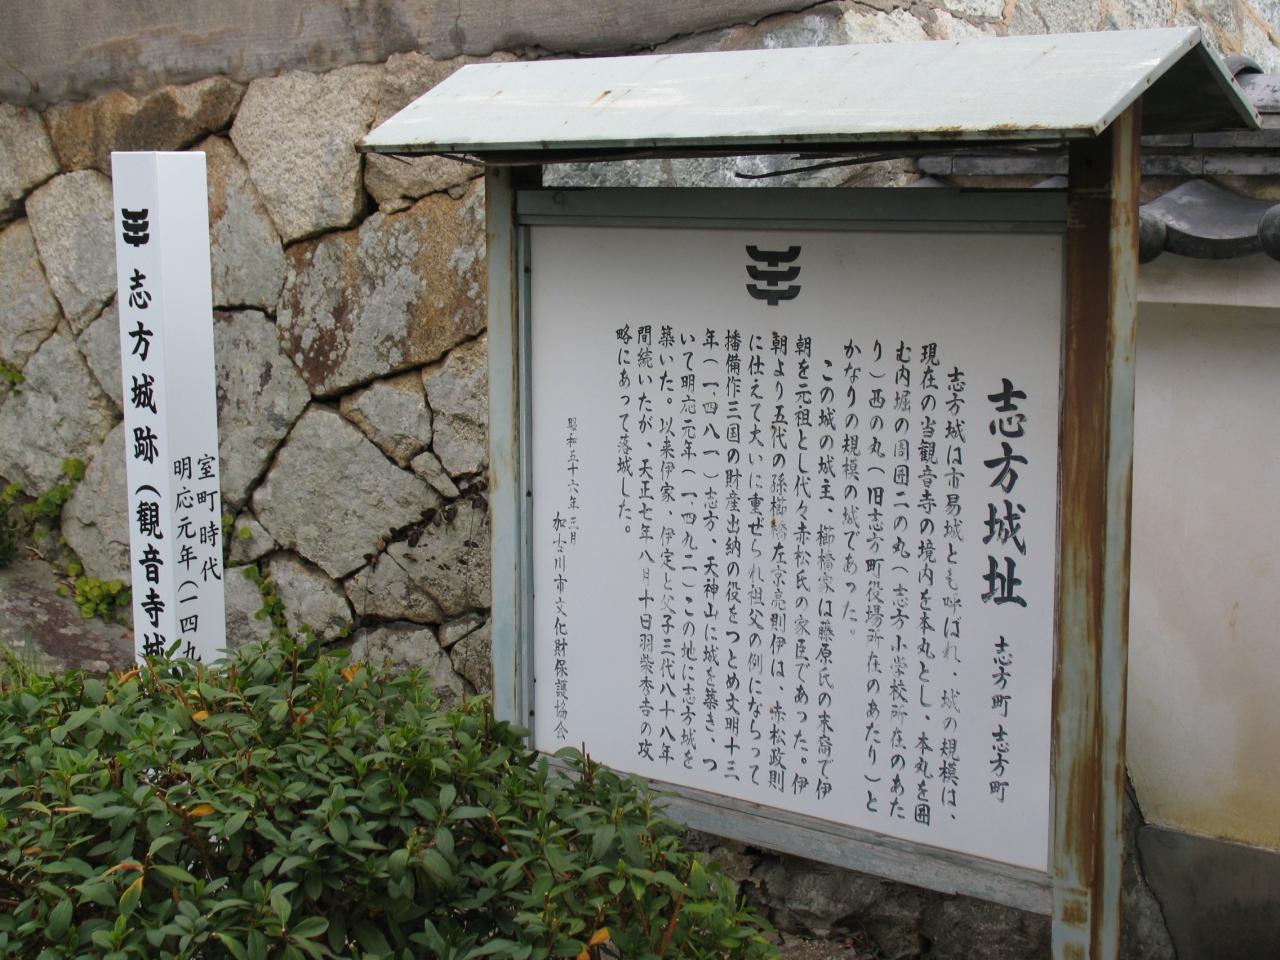 志方城址
志方町志方町
志方城は市易城とも呼ばれ、城の規模は、
現在の当観音寺の境内を本丸とし、本丸を囲
む内堀の周囲二の丸(志方小学校所在のあた
り)西の丸(旧志方町役場所在のあたり)と
かなりの規模の城であった。
この城の城主、櫛橋家は藤原氏の末裔で伊
朝を元祖とし代々赤松氏の家臣であった。伊
朝より五代の孫櫛橋左京亮則伊は、赤松政則
に仕えて大いに重ぜられ祖父の例にならって
播備作三国の財産出納の役をつとめ文明十三
年(一四八一)志方、天神山に城を築き、つ
いて明応元年(一四九二)この地に志方城を
築いた。以来伊家、伊定と父子三代八十八年
間続いたが、天正七年八月十日羽柴秀吉の攻
略にあって落城した。
昭和五十六年三月
加古川市文化財保護協会
室町時代
明応元年(一四九
志方城跡(観音寺城